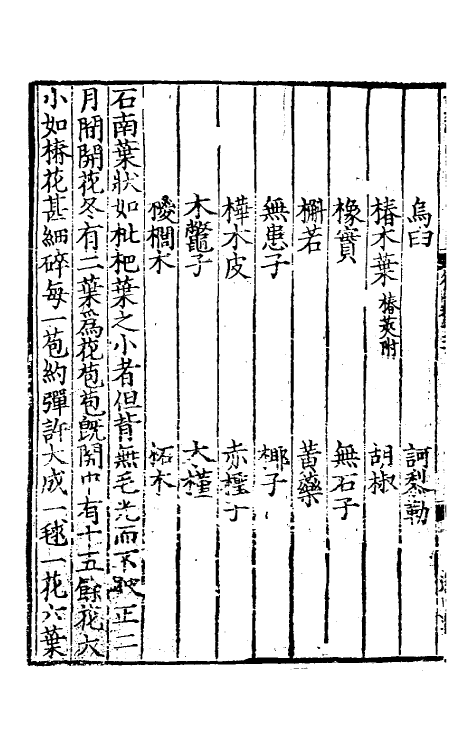 烏臼 訶梨勒
椿木葉 椿莢附 胡椒
橡實 無石子
槲若 黃藥
無患子 椰子
樺木皮 赤檉
木鼈子 木槿
椶櫚木 柘木
石南葉狀如枇杷葉之小者但背無毛光而不皺正二
月間開花冬有二葉爲花苞苞旣開中有十五餘花大
小如椿花甚細碎每一苞約彈許大成一毬一花六葉